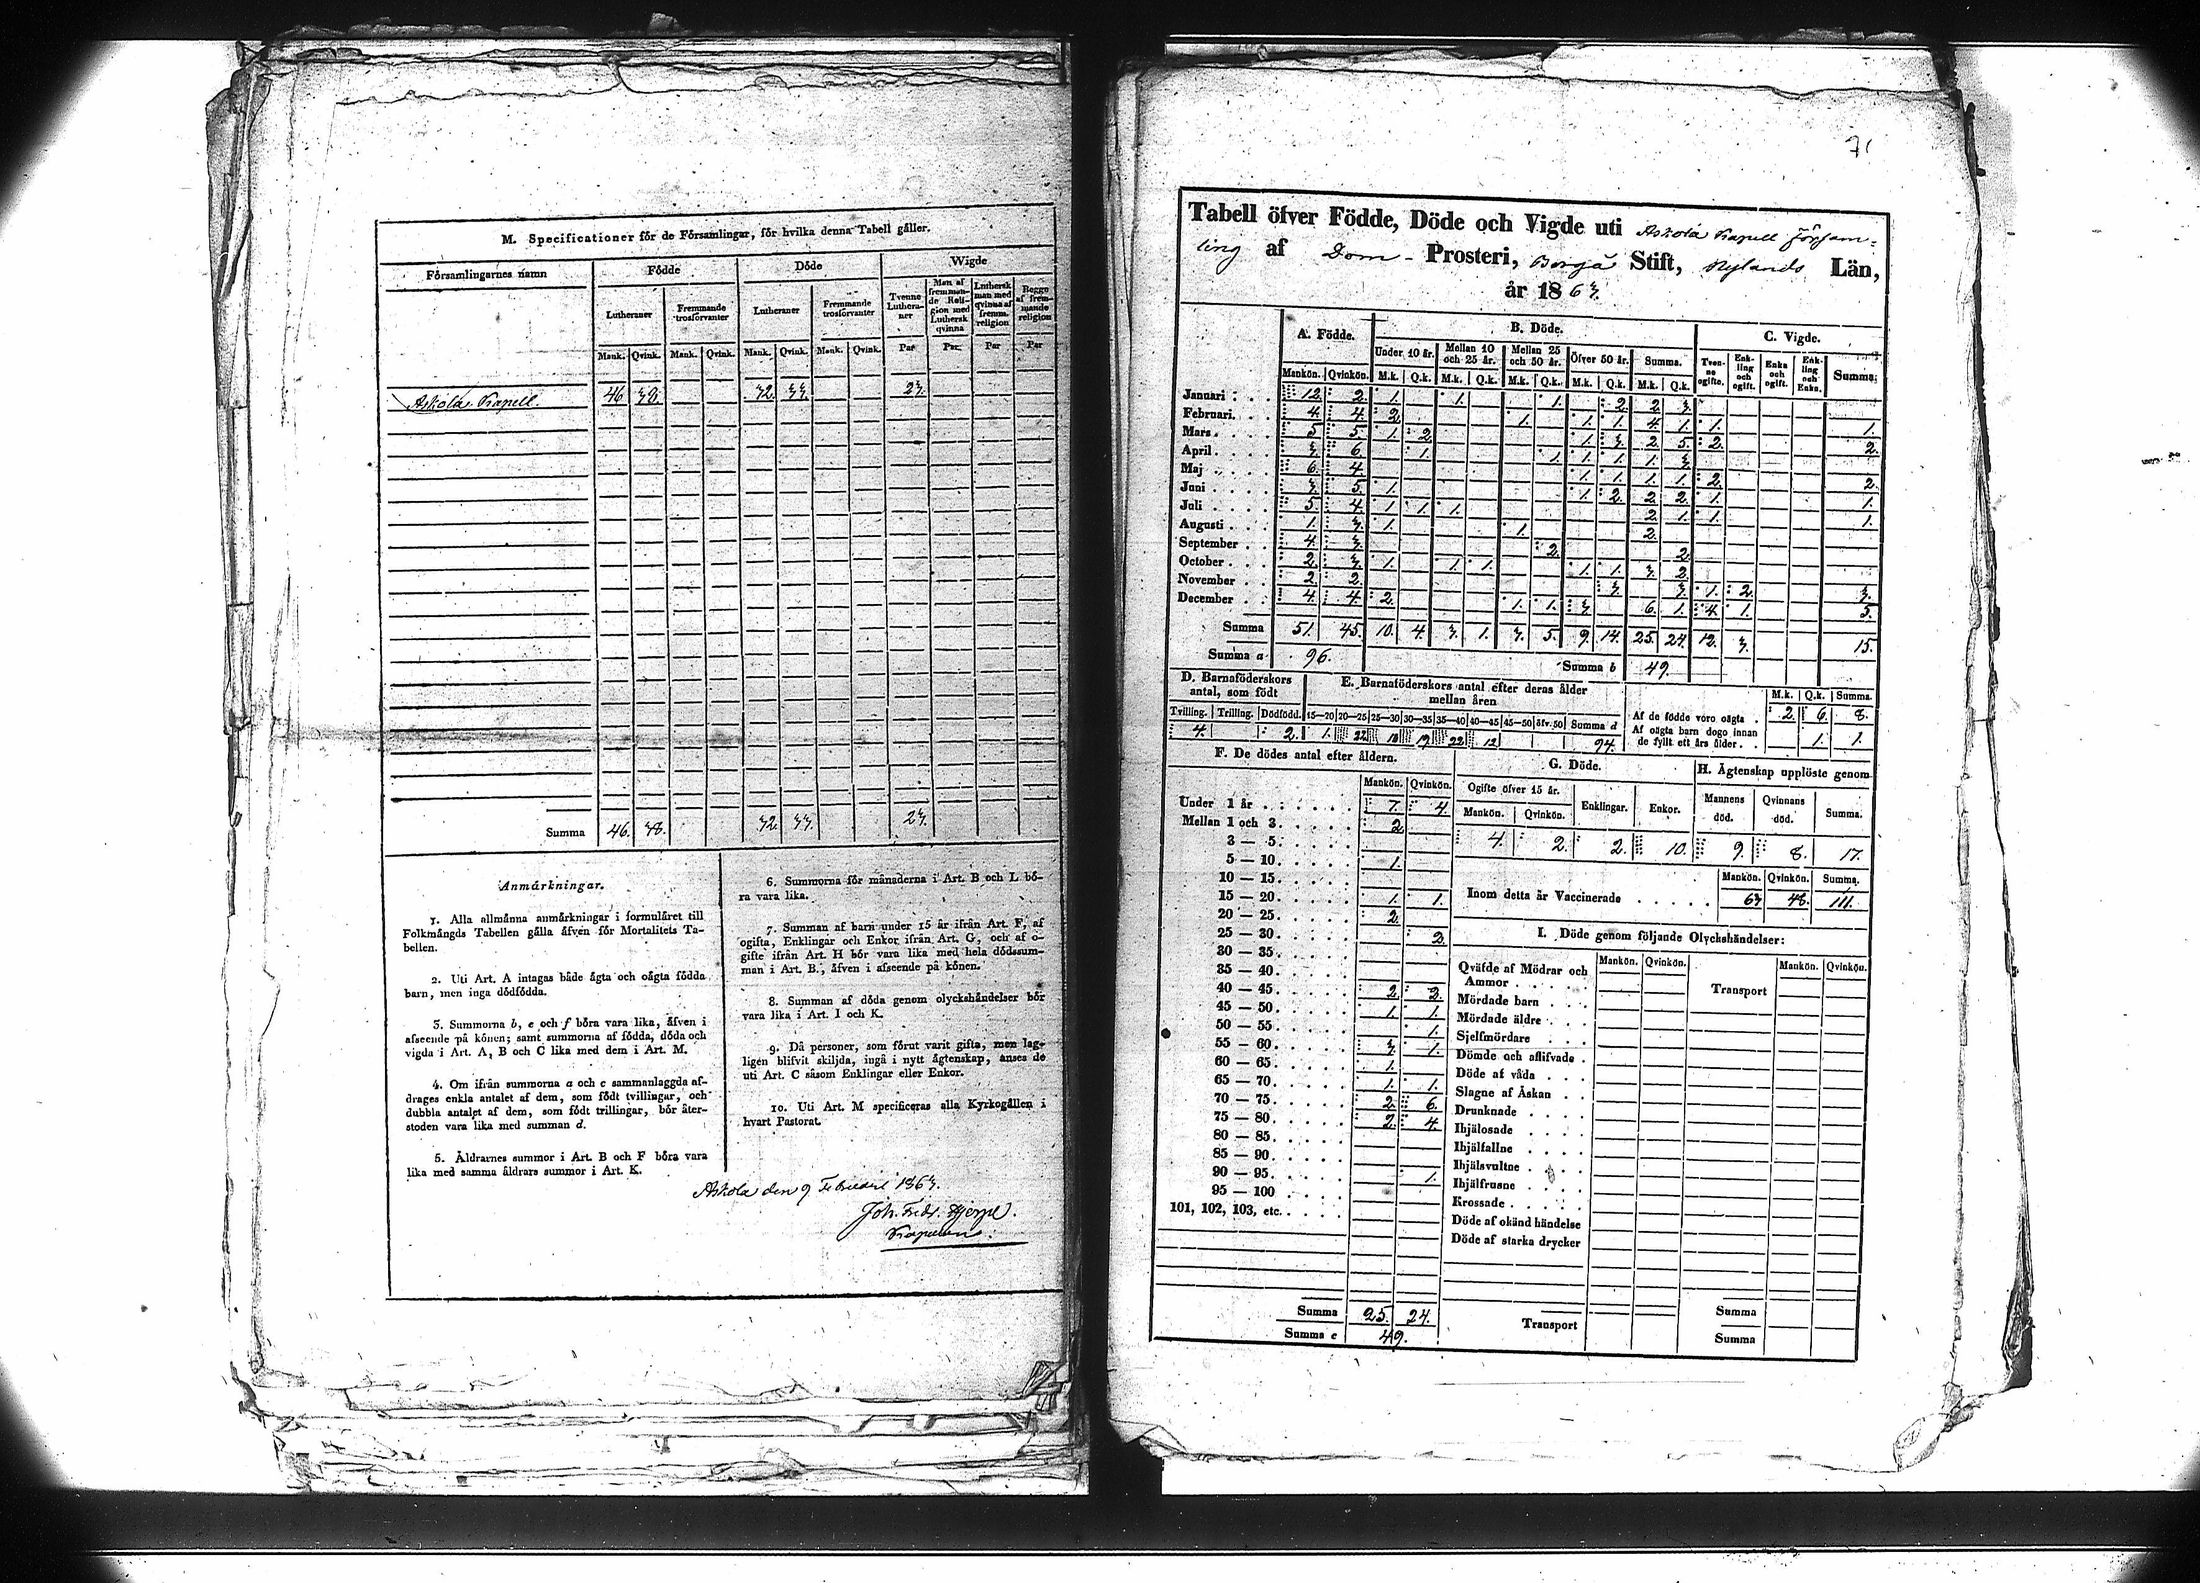 M. Specificationer för de Församlingar, för hvilka denna Tabell gäller.
Församlingarnes namn | Födde | Döde | Wigde
Lutheraner | Fremmande trosförvanter | Lutheraner | Fremmande trosförvanter | Tvenne Lutheraner | Man af fremmande Religion med Luthersk qvinna | Luthersk man med qvinna af fremm. religion | Begge af fremmande religion
Mank. Qvink. Mank. Qvink. Mank. Qvink. Mank. Qvink. Par Par Par Par
Askola Kapell. 46 38 32. 33. 23.
Summa 46. 38. 32. 33. 23.
Anmärkningar.
1. Alla allmänna anmärkningar i formuläret till
Folkmängds Tabellen gälla äfven för Mortalitets Ta-
bellen.
2. Uti Art. A intagas både ägta och oägta födda
barn, men inga dödfödda.
3. Summorna b, e och f böra vara lika, äfven i
afseende på könen; samt summorna af födda, döda och
vigda i Art. A, B och C lika med dem i Art. M.
4. Om ifrån summorna a och c sammanlaggda af-
drages enkla antalet af dem, som födt tvillingar, och
dubbla antalet af dem, som födt trillingar, bör åter-
stoden vara lika med summan d.
5. Åldrarnes summor i Art. B och F böra vara
lika med samma åldrars summor i Art. K.
6. Summorna för månaderna i Art. B och L bö-
ra vara lika.
7. Summan af barn under 15 år ifrån Art. F, af
ogifta, Enklingar och Enkor ifrån Art. G, och af o-
gifte ifrån Art. H bör vara lika med hela dödssum-
man i Art. B., äfven i afseende på könen.
8. Summan af döda genom olyckshändelser bör
vara lika i Art. I och K.
9. Då personer, som förut varit gifta, men lag-
ligen blifvit skiljda, ingå i nytt ägtenskap, anses de
uti Art. C såsom Enklingar eller Enkor.
10. Uti Art. M specificeras alla Kyrkogällen i
hvart Pastorat.
Askola den 9 Februari 1863.
Joh. Fredr. Hjerpe.
Kapellan.
71
Tabell öfver Födde, Döde och Vigde uti Askola Kapell församling
af Dom- Prosteri, Borgå Stift, Nylands Län,
år 1863.
A. Födde. | B. Döde. | C. Vigde.
Under 10 år. | Mellan 10 och 25 år. | Mellan 25 och 50 år. | Öfver 50 år. | Summa. | Tvenne ogifte. | Enkling och ogift. | Enka och ogift. | Enkling och Enka. | Summa.
Mankön. Qvinkön. M.k. Q.k. M.k. Q.k. M.k. Q.k. M.k. Q.k. M.k. Q.k.
Januari 12. 2. 1. 1. 1. 2. 2. 3.
Februari 4. 4. 2. 1. 1. 1. 4. 1. 1. 1.
Mars 5. 5. 1. 2. 1. 3. 2. 5. 2. 2.
April 3. 6. 1. 1. 1. 1. 1. 3.
Maj 6. 4. 1. 1. 1. 1. 2. 2.
Juni 3. 5. 1. 1. 2. 2. 2. 1. 1.
Juli 5. 4. 1. 1. 1. 2. 1. 1. 1.
Augusti 1. 3. 1. 1. 2.
September 4. 3. 2. 2.
October 2. 3. 1. 1. 1. 1. 1. 3. 2.
November 2. 2. 3. 3. 1. 2. 3.
December 4. 4. 2. 1. 1. 3. 6. 1. 4. 1. 5.
Summa 51. 45. 10. 4. 3. 1. 3. 5. 9. 14. 25. 24. 12. 3. 15.
Summa a 96. Summa b 49.
D. Barnaföderskors antal, som födt
Tvilling. | Trilling. | Dödfödd.
4. 2.
E. Barnaföderskors antal efter deras ålder mellan åren
15—20 | 20—25 | 25—30 | 30—35 | 35—40 | 40—45 | 45—50 | öfv. 50 | Summa d
1. 22 18 19 22 12 94.
M.k. Q.k. Summa.
Af de födde voro oägta . 2. 6. 8.
Af oägta barn dogo innan
de fyllt ett års ålder . . 1. 1.
F. De dödes antal efter åldern.
Mankön. Qvinkön.
Under 1 år 7. 4.
Mellan 1 och 3 2.
3 — 5
5 — 10 1.
10 — 15
15 — 20 1. 1.
20 — 25 2.
25 — 30 2.
30 — 35
35 — 40
40 — 45 2. 2.
45 — 50 1. 1.
50 — 55 1.
55 — 60 3. 1.
60 — 65 1.
65 — 70 1. 1.
70 — 75 2. 6.
75 — 80 2. 4.
80 — 85
85 — 90
90 — 95 1.
95 — 100
101, 102, 103, etc.
Summa 25. 24.
Summa c 49.
G. Döde.
Ogifte öfver 15 år. | Enklingar. | Enkor.
Mankön. Qvinkön.
4. 2. 2. 10.
H. Ägtenskap upplöste genom
Mannens död. | Qvinnans död. | Summa.
9. 8. 17.
Mankön. Qvinkön. Summa.
Inom detta år Vaccinerade 63 48. 111.
I. Döde genom följande Olyckshändelser:
Mankön. Qvinkön. Mankön. Qvinkön.
Qväfde af Mödrar och
Ammor
Transport
Mördade barn
Mördade äldre
Sjelfmördare
Dömde och aflifvade
Döde af våda
Slagne af Åskan
Drunknade
Ihjälosade
Ihjälfallne
Ihjälsvultne
Ihjälfrusne
Krossade
Döde af okänd händelse
Döde af starka drycker
Transport
Summa
Summa